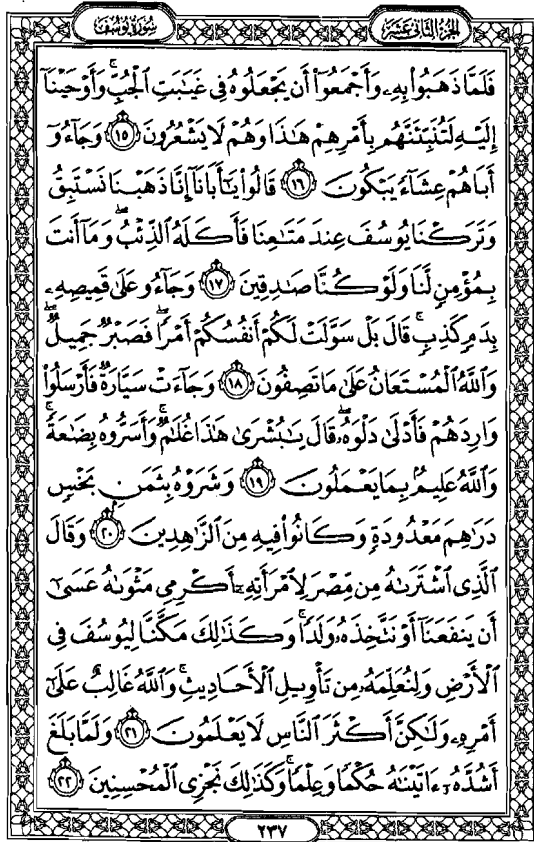 سورة يوسف
الجزء الثاني عشر
فَلَمَّا ذَهَبُوا۟ بِهِۦ وَأَجْمَعُوٓا۟ أَن يَجْعَلُوهُ فِى غَيَٰبَتِ ٱلْجُبِّ ۚ وَأَوْحَيْنَآ
إِلَيْهِ لَتُنَبِّئَنَّهُم بِأَمْرِهِمْ هَٰذَا وَهُمْ لَا يَشْعُرُونَ ١٥ وَجَآءُوٓ
أَبَاهُمْ عِشَآءً يَبْكُونَ ١٦ قَالُوا۟ يَٰٓأَبَانَآ إِنَّا ذَهَبْنَا نَسْتَبِقُ
وَتَرَكْنَا يُوسُفَ عِندَ مَتَٰعِنَا فَأَكَلَهُ ٱلذِّئْبُ ۖ وَمَآ أَنتَ
بِمُؤْمِنٍ لَّنَا وَلَوْ كُنَّا صَٰدِقِينَ ١٧ وَجَآءُو عَلَىٰ قَمِيصِهِۦ
بِدَمٍ كَذِبٍ ۚ قَالَ بَلْ سَوَّلَتْ لَكُمْ أَنفُسُكُمْ أَمْرًا ۖ فَصَبْرٌ جَمِيلٌ ۖ
وَٱللَّهُ ٱلْمُسْتَعَانُ عَلَىٰ مَا تَصِفُونَ ١٨ وَجَآءَتْ سَيَّارَةٌ فَأَرْسَلُوا۟
وَارِدَهُمْ فَأَدْلَىٰ دَلْوَهُۥ ۖ قَالَ يَٰبُشْرَىٰ هَٰذَا غُلَٰمٌ ۚ وَأَسَرُّوهُ بِضَٰعَةً ۚ
وَٱللَّهُ عَلِيمٌۢ بِمَا يَعْمَلُونَ ١٩ وَشَرَوْهُ بِثَمَنٍۭ بَخْسٍ
دَرَٰهِمَ مَعْدُودَةٍ وَكَانُوا۟ فِيهِ مِنَ ٱلزَّٰهِدِينَ ٢٠ وَقَالَ
ٱلَّذِى ٱشْتَرَىٰهُ مِن مِّصْرَ لِٱمْرَأَتِهِۦٓ أَكْرِمِى مَثْوَىٰهُ عَسَىٰٓ
أَن يَنفَعَنَآ أَوْ نَتَّخِذَهُۥ وَلَدًا ۚ وَكَذَٰلِكَ مَكَّنَّا لِيُوسُفَ فِى
ٱلْأَرْضِ وَلِنُعَلِّمَهُۥ مِن تَأْوِيلِ ٱلْأَحَادِيثِ ۚ وَٱللَّهُ غَالِبٌ عَلَىٰٓ
أَمْرِهِۦ وَلَٰكِنَّ أَكْثَرَ ٱلنَّاسِ لَا يَعْلَمُونَ ٢١ وَلَمَّا بَلَغَ
أَشُدَّهُۥٓ ءَاتَيْنَٰهُ حُكْمًا وَعِلْمًا ۚ وَكَذَٰلِكَ نَجْزِى ٱلْمُحْسِنِينَ ٢٢
٢٣٧